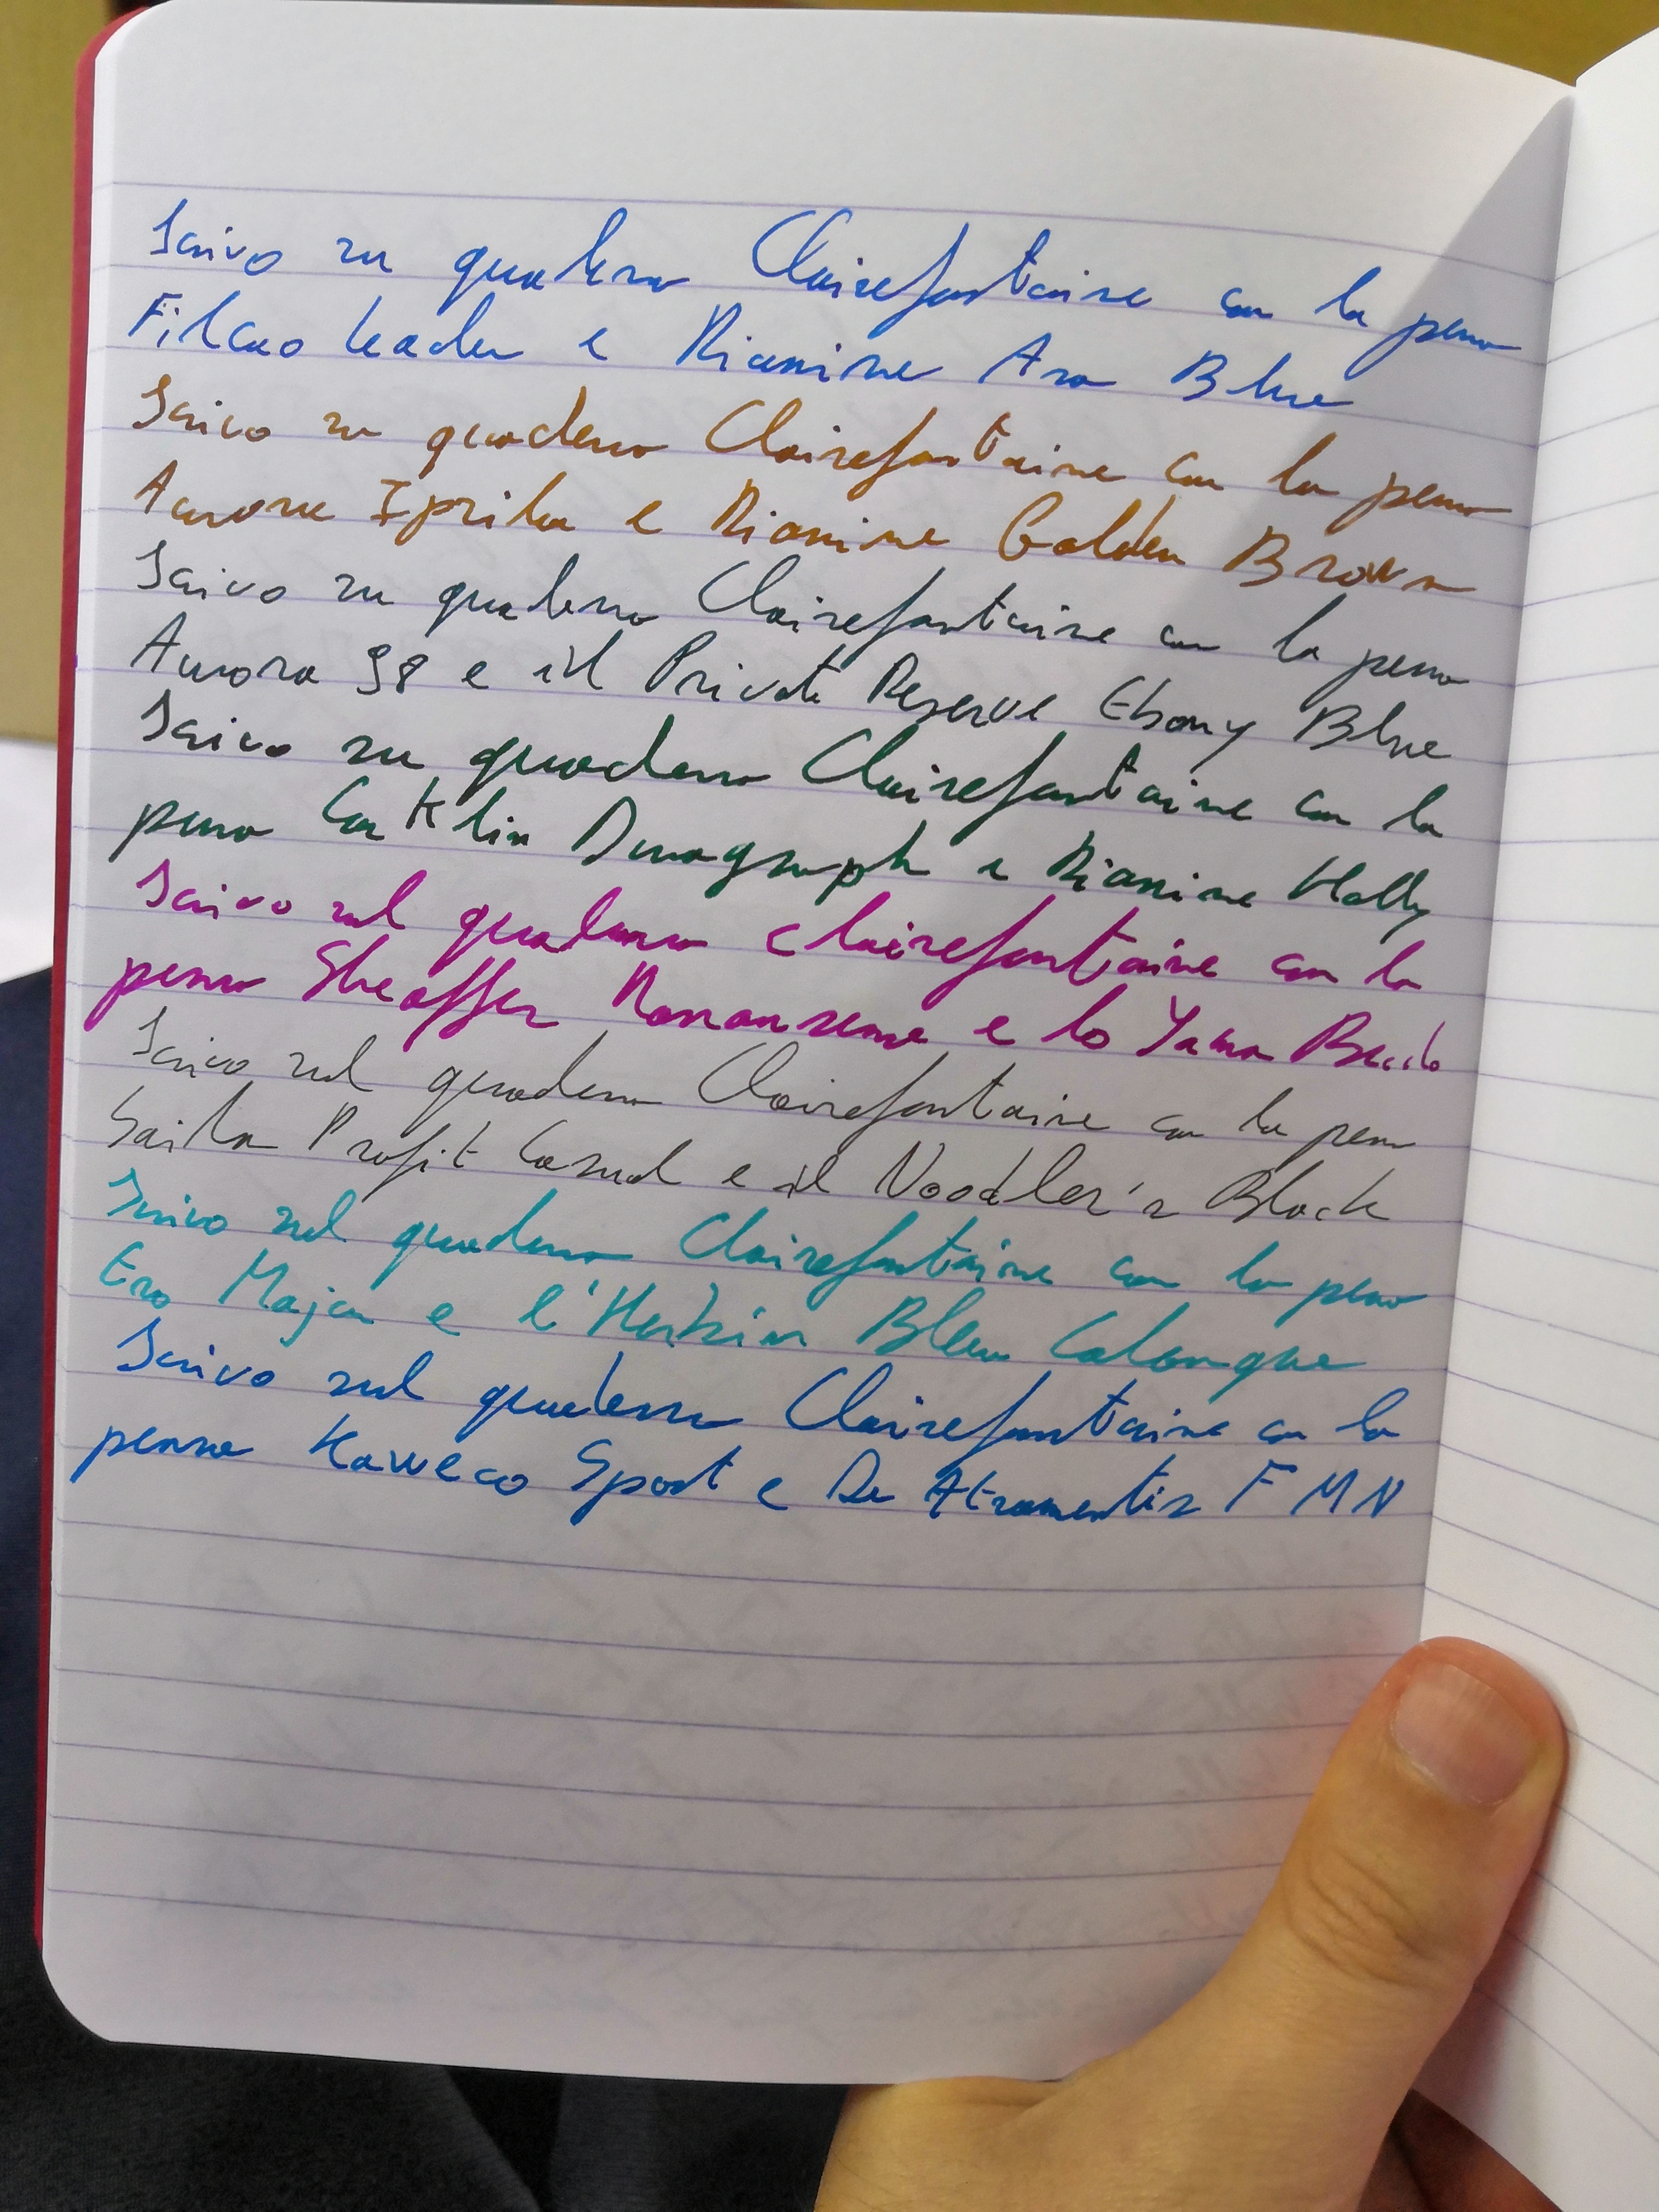 Scrivo su quaderno Clairefontaine con la penna
Filcao Leader e Diamine Asa Blue
Scrivo su quaderno Clairefontaine con la penna
Aurora Ipsilon e Diamine Golden Brown
Scrivo su quaderno Clairefontaine con la penna
Aurora 98 e il Private Reserve Ebony Blue
Scrivo su quaderno Clairefontaine con la
penna Conklin Duragraph e Diamine Holly
Scrivo sul quaderno Clairefontaine con la
penna Sheaffer e lo Yama Budo
Scrivo sul quaderno Clairefontaine con la penna
Sailor Profit Casual e il Noodler's Black
Scrivo sul quaderno Clairefontaine con la penna
Ero Major e l'Herbin Bleu Calanque
Scrivo sul quaderno Clairefontaine con la
penna Kaweco Sport e De Atramentis FMN